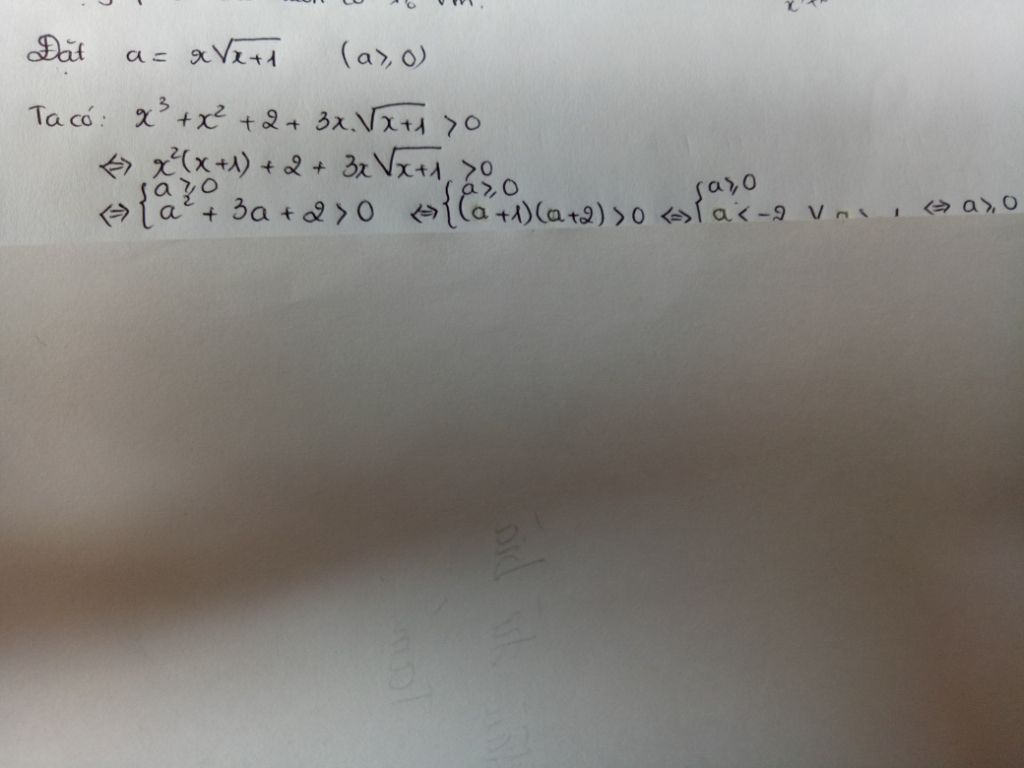 Đặt a = x√(x+1) (a ⩾ 0)
Ta có: x³ + x² + 2 + 3x.√(x+1) > 0
⇔ x²(x+1) + 2 + 3x√(x+1) > 0
⇔ { a ⩾ 0 a² + 3a + 2 > 0 ⇔ { a ⩾ 0 (a+1)(a+2) > 0 ⇔ { a ⩾ 0 a < -2 ∨ ⇔ a ⩾ 0